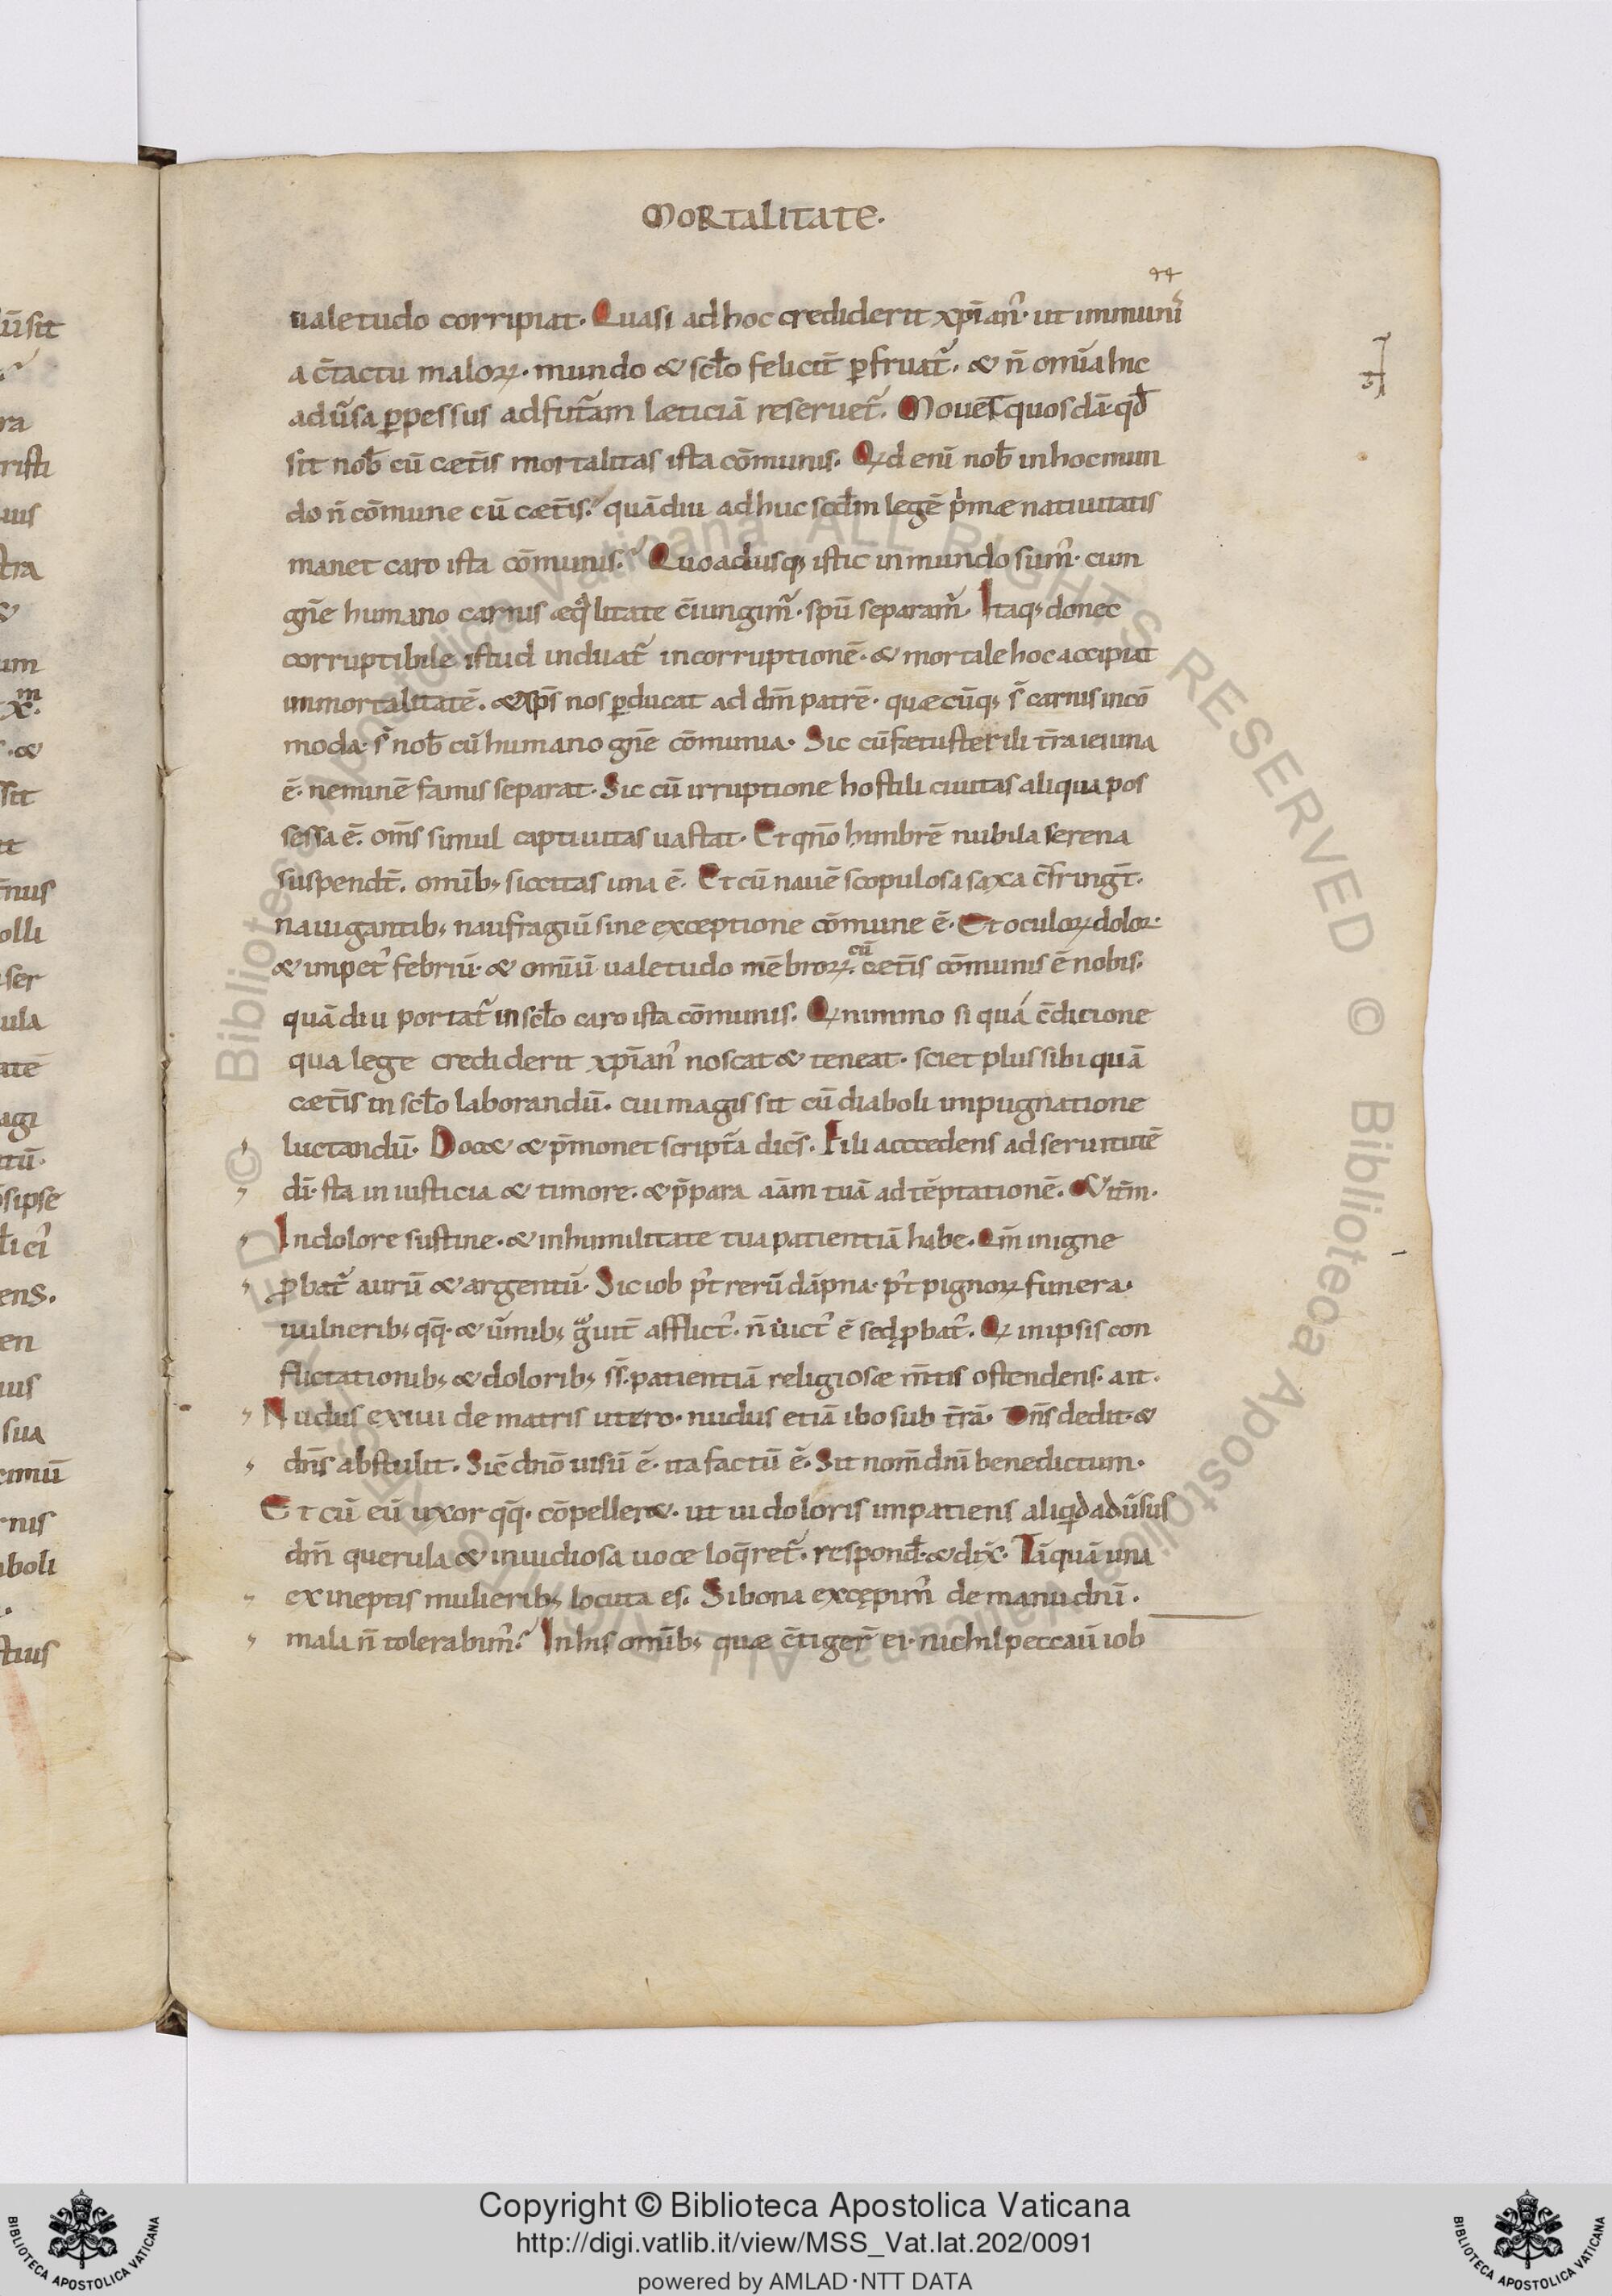 MORTALITATE.
44
ualetudo corripiat. Quasi ad hoc crediderit xpīan᾿. ut immuni᾿
a c̄tactu maloꝝ. mundo & sc̄lo felicit̄ ꝑfruat᾿. & n̄ omīa hic
adūsa ꝑpessus ad fut᾿am læticiā reseruet᾿. Mouet quosdā. qđ
sit nob̄ cū cæt̄is mortalitas ista cōmunis. Qđ eni nob̄ in hoc mun
do n̄ cōmune cū cæt̄is? quādiu adhuc scđm legē pͥmæ natiuitatis
manet caro ista cōmunis? Quoadusq; istic in mundo sum᾿. cum
gn̄e humano carnis æqͣlitate c̄iungim᾿. spū separam᾿. Itaq; donec
corruptibile istud induat᾿ incorruptionē. & mortale hoc accipiat
immortalitatē. & xp̄s nos ꝑducat ad dm̄ patrē. quæcūq; s᾿ carnis incō
moda. s᾿ nob̄ cū humano gn̄e cōmunia. Sic cū fetu sterili t̄ra ieiuna
ē. neminē famis separat. Sic cū irruptione hostili ciuitas aliqua pos
sessa ē. om̄s simul captiuitas uastat. Et qn̄o himbrē nubila serena
suspendt̄. omīb; siccitas una ē. Et cū nauē scopulosa saxa c̄fringt̄.
nauigantib; naufragiū sine exceptione cōmune ē. Et oculoꝝ dolor.
& impet᾿ febriū. & omīū ualetudo mēbroꝝ. cū cæt̄is cōmunis ē nobis.
quādiu portat᾿ in sc̄lo caro ista cōmunis. Qnimmo si quá c̄dicione
qua lege crediderit xpīan᾿ noscat & teneat. sciet plus sibi quā
cæt̄is in sc̄lo laborandū. cui magis sit cū diaboli impugnatione
luctandū. Docet & p̄monet script᾿a dic̄s. Fili acccedens ad seruitutē
dī. sta in iusticia & timore. & p̄para aām tuā ad tēptationē. Et itm̄.
In dolore sustine. & in humilitate tua patientiā habe. Qm̄ in igne
ꝓbat᾿ aurū & argentū. Sic iob p᾿t rerū dāpna. p᾿t pignoꝝ funera.
uulnerib; qq̄. & ūmib; gͣuit̄ afflict᾿. n̄ uict᾿ ē sed ꝓbat᾿. Q in ipsis con
flictationib; & dolorib; s̄s. patientiā religiosæ m̄tis ostendens. ait.
Nudus exiui de matris utero. nudus etiā ibo sub t̄rā. Dn̄s dedit. &
dn̄s abstulit. Sic̄ dnō uisū ē. ita factū ē. Sit nom̄ dnī benedictum.
Et cū eū uxor qq̄. cōpelleret. ut ui doloris impatiens aliqͥd adūsus
dm̄ querula & inuidiosa uoce loq̄ret᾿. respond̄. & dix̄. Tāquā una
ex ineptis mulierib; locuta es. Si bona excępim᾿ de manu dnī.
mala n̄ tolerabim᾿? In his omīb; quæ c̄tiger̄ ei. nichil peccauī iob
Copyright © Biblioteca Apostolica Vaticana
http://digi.vatlib.it/view/MSS_Vat.lat.202/0091
powered by AMLAD·NTT DATA